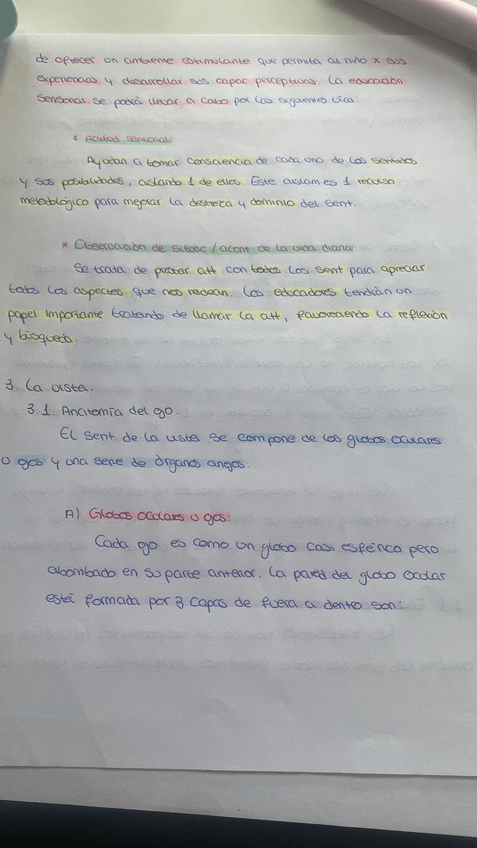 de ofrecer un ambiente estimulante que permita al niño x sus
experiencias y desarrollar sus capac perceptivas. La educación
sensorial se podrá llevar a cabo por las siguientes vías:
* Activid sensorial
Ayudan a tomar consciencia de cada uno de los sentidos
y sus posibilidades, aislando 1 de ellos. Este aislam es 1 recurso
metodológico para mejorar la destreza y dominio del sent.
* Observación de situac/acont de la vida diaria:
Se trata de prestar att con todos los sent para apreciar
todos los aspectos que nos rodean. Los educadores tendrán un
papel importante tratando de llamar la att, favoreciendo la reflexión
y búsqueda.
3. La vista.
3.1. Anatomía del ojo.
El sent de la vista se compone de los globos oculares
o ojos y una serie de órganos anejos.
A) Globos oculares u ojos:
Cada ojo es como un globo casi esférico pero
abombado en su parte anterior. La pared del globo ocular
está formada por 3 capas de fuera a dentro son: